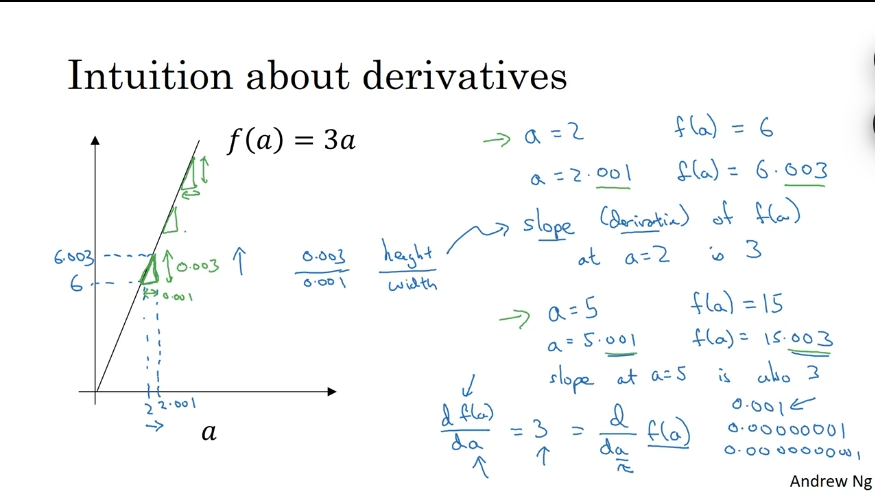 Intuition about derivatives
f(a) = 3a
6.003
6
0.003
0.001
2 2.001
a
0.003
0.001
height
width
→ a = 2 f(a) = 6
a = 2.001 f(a) = 6.003
slope (derivative) of f(a)
at a=2 is 3
→ a = 5 f(a) = 15
a = 5.001 f(a) = 15.003
slope at a=5 is also 3
d f(a)
da
= 3 =
d
da
f(a)
0.001 ←
0.00000001
0.0000000001
Andrew Ng